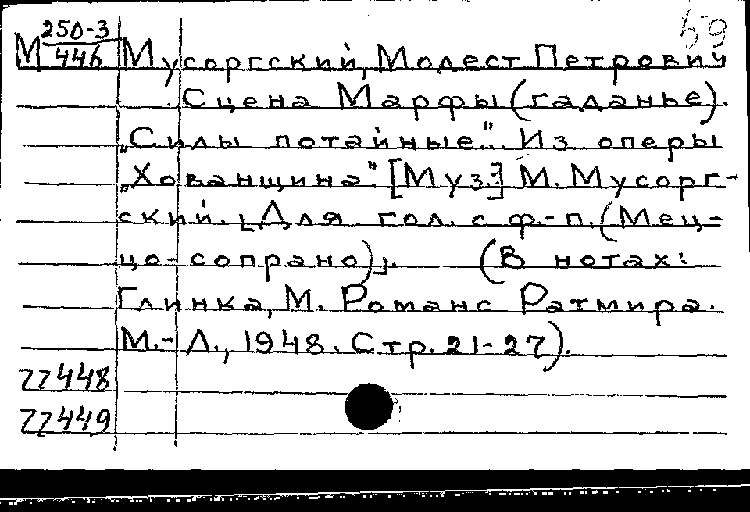 59
М 250-3/446 Мусоргский, Модест Петрович
Сцена Марфы (гаданье).
„Силы потайные“. Из оперы
„Хованщина“. [Муз.] М. Мусорг-
ский. [Для гол. с ф.-п. (Мец-
цо-сопрано)]. (В нотах:
Глинка, М. Романс Ратмира.
М.-Л., 1948. Стр. 21-27).
22448
22449